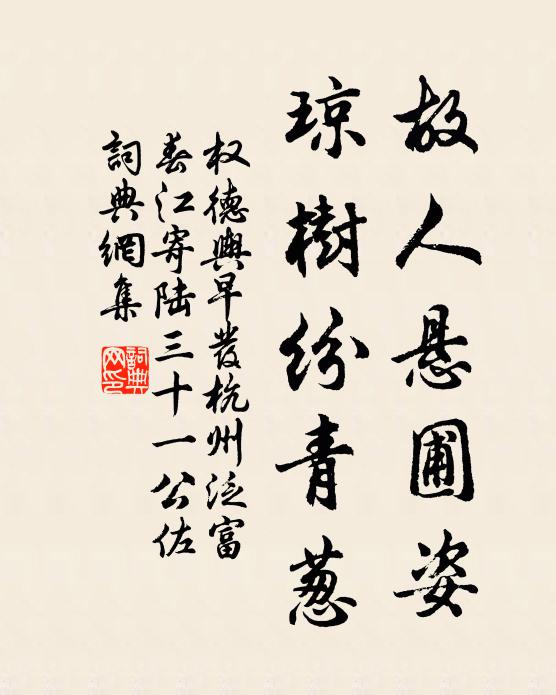 故人悬圃姿
琼樹纷青葱
权德輿早發杭州泛富
春江寄陆三十一公佐
詞典網集
詞典网印